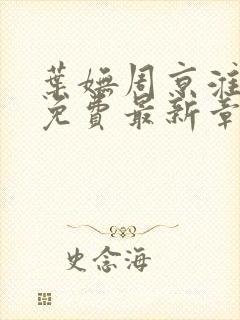 葉嫵周京淮
免費最新章
史念海